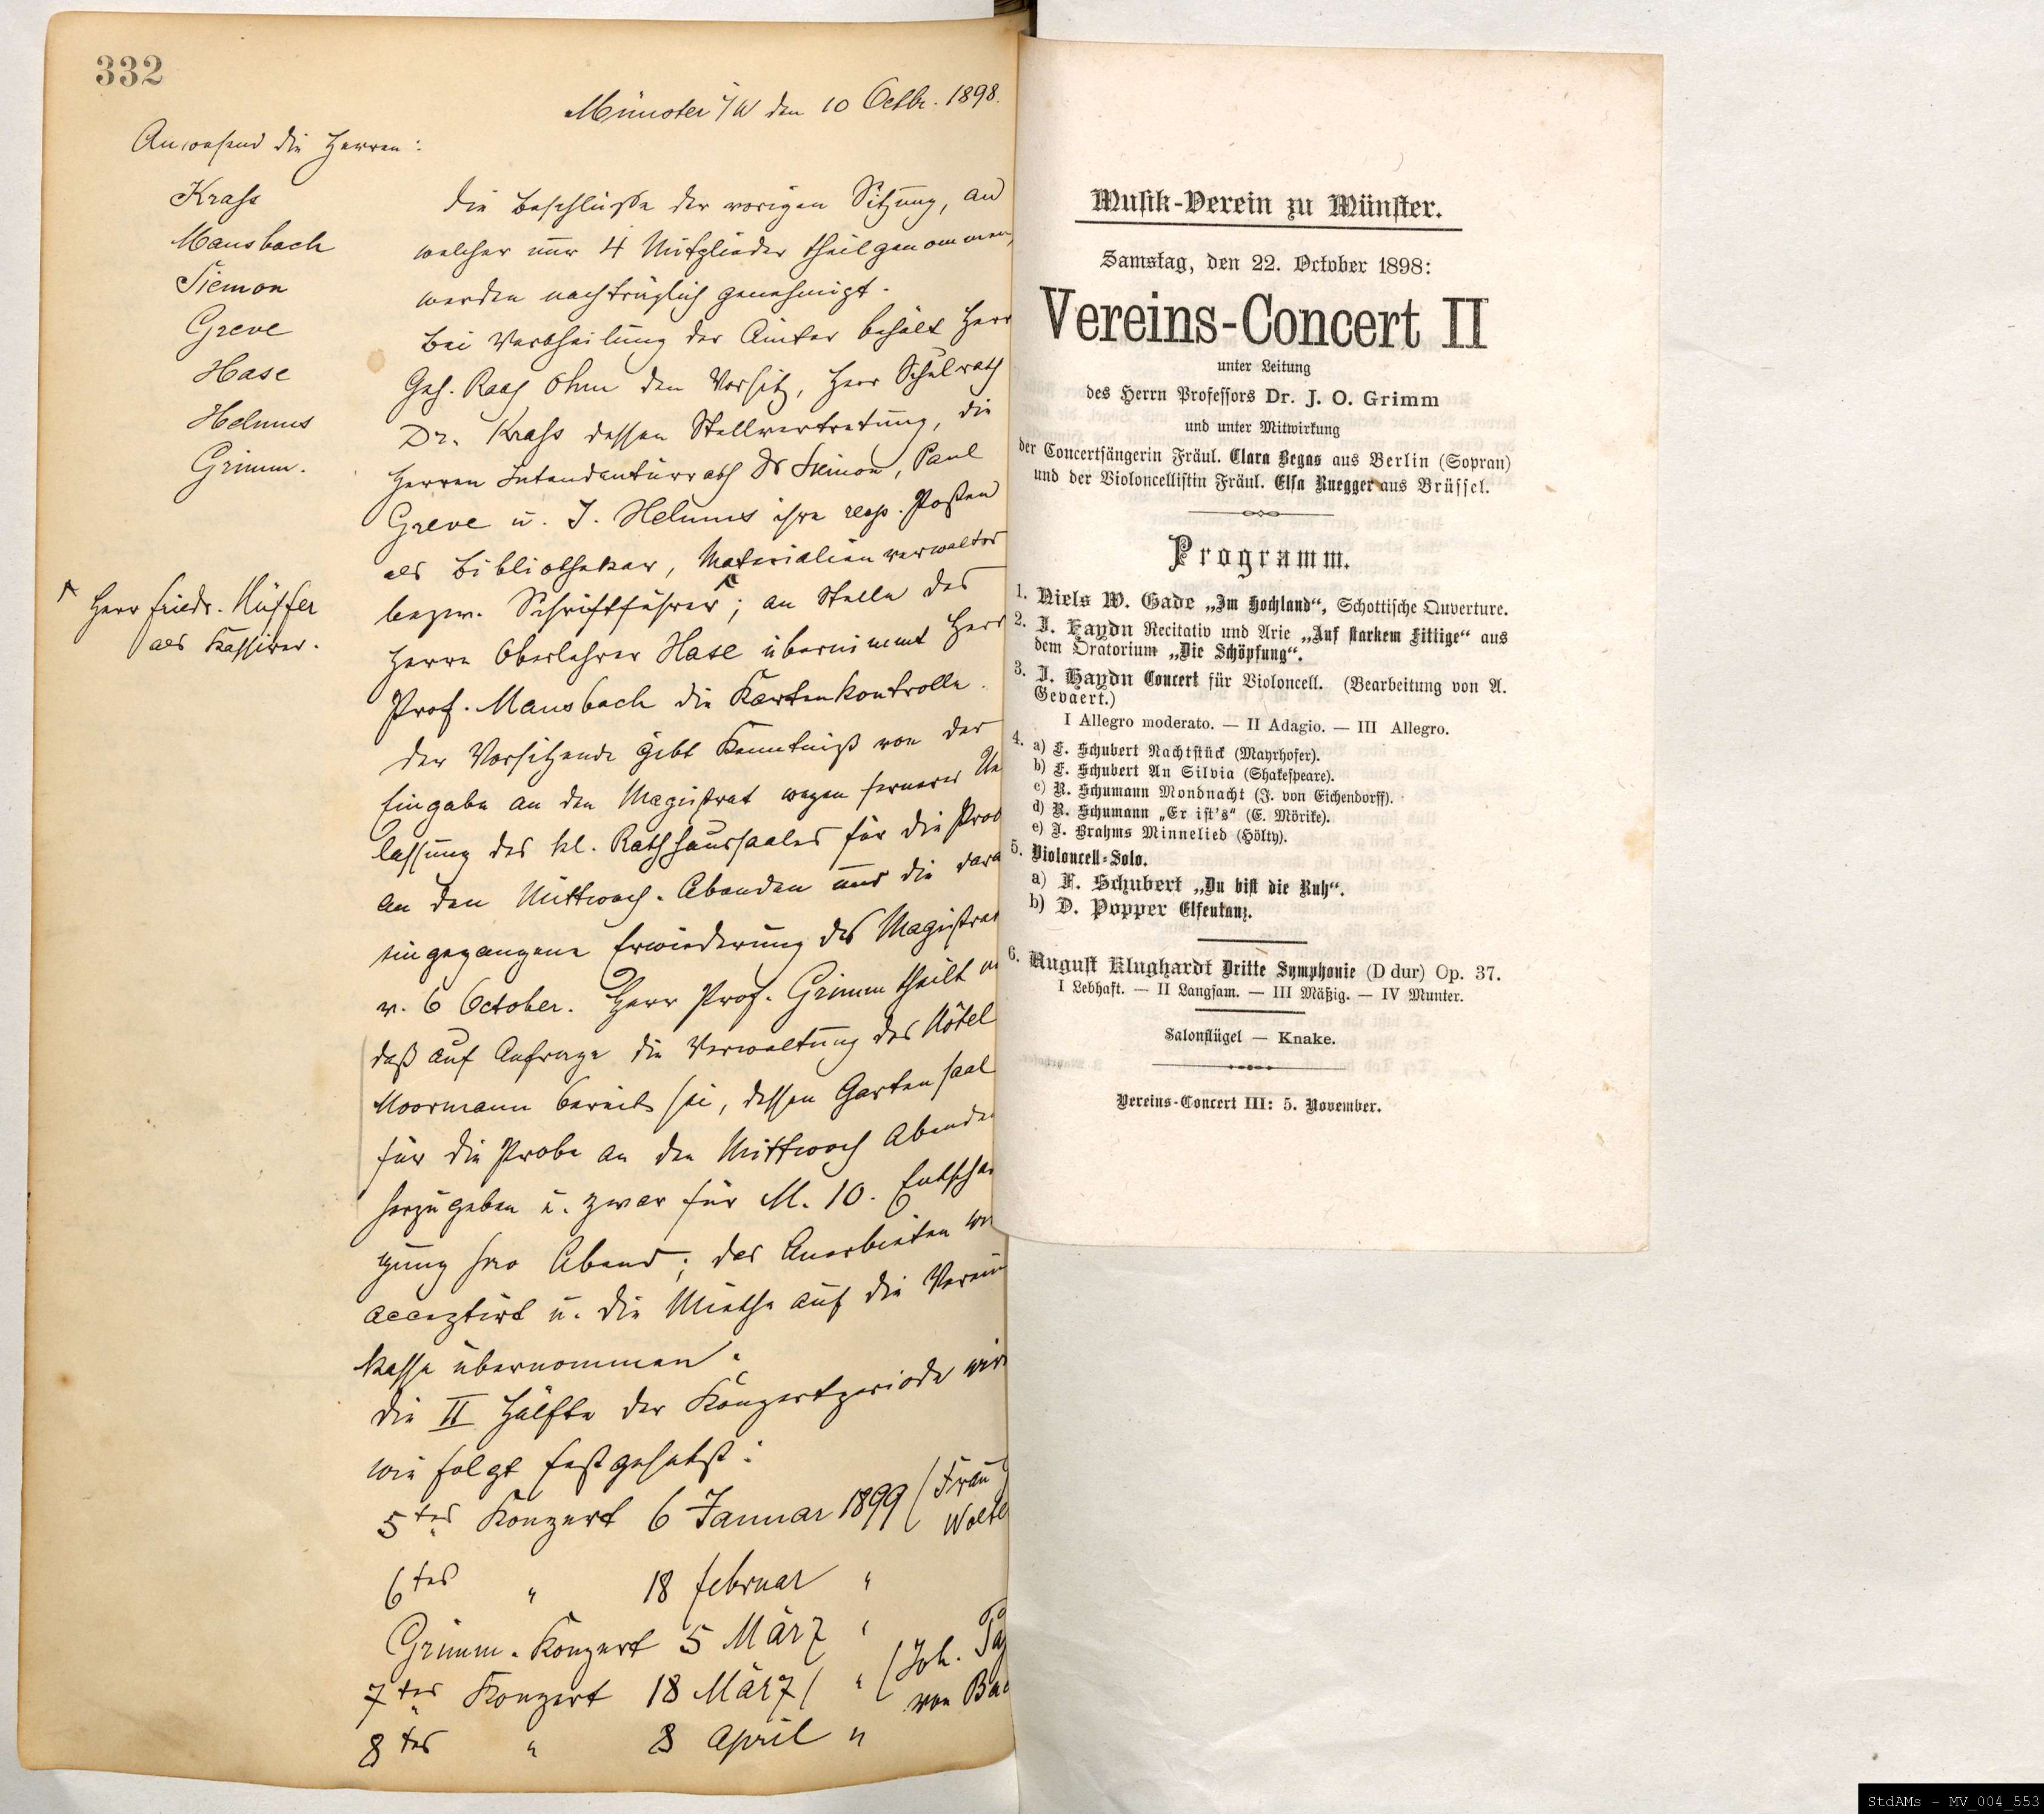 332
Münster i/W den 10 Octbr. 1898.
Anwesend die Herren:
Krass
Mausbach
Siemon
Greve
Hase
Helmus
Grimm.
Die Beschlüsse der vorigen Sitzung, an
welcher nur 4 Mitglieder theilgenommen,
werden nachträglich genehmigt.
Bei Vertheilung der Ämter behält Herr
Geh. Rath Ohm den Vorsitz, Herr Schulrath
Dr. Krass dessen Stellvertretung, die
Herren Intendanturrath Dr Siemon, Paul
Greve u. J. Helmus ihre resp. Posten
als Bibliothekar, Materialienverwalter
bezw. Schriftführer ; an Stelle des
Herrn Oberlehrer Hase übernimmt Herr
Prof. Mausbach die Kartenkontrolle.
Herr Friedr. Hüffer
als Kassirer.
Der Vorsitzende gibt Kenntniß von der
Eingabe an den Magistrat wegen fernerer Ue
lassung des kl. Rathhaussaales für die Prob
an den Mittwoch-Abenden und die dara
eingegangene Erwiederung des Magistrat
v. 6 October. Herr Prof. Grimm theilt m
daß auf Anfrage die Verwaltung des Hôtel
Moormann bereit sei, dessen Gartensaal
für die Probe an den Mittwoch Abende
herzugeben u. zwar für M. 10. Entschä
gung pro Abend; das Anerbieten wi
acceptirt u. die Miethe auf die Verein
kasse übernommen.
Die II Hälfte der Konzertperiode wir
wie folgt festgesetzt:
5tes Konzert 6 Januar 1899 (Frau
Wolte
6tes " 18 Februar "
Grimm-Konzert 5 März "
7tes Konzert 18 März " (Joh.
von Bac
8tes " 8 April "
Musik-Verein zu Münster.
Samstag, den 22. October 1898:
Vereins-Concert II
unter Leitung
des Herrn Professors Dr. J. O. Grimm
und unter Mitwirkung
der Concertsängerin Fräul. Clara Begas aus Berlin (Sopran)
und der Violoncellistin Fräul. Elsa Ruegger aus Brüssel.
Programm.
1. Niels W. Gade „Im Hochland“, Schottische Ouverture.
2. J. Haydn Recitativ und Arie „Auf starkem Fittige“ aus
dem Oratorium „Die Schöpfung“.
3. J. Haydn Concert für Violoncell. (Bearbeitung von A.
Gevaert.)
I Allegro moderato. — II Adagio. — III Allegro.
4. a) F. Schubert Nachtstück (Mayrhofer).
b) F. Schubert An Silvia (Shakespeare).
c) R. Schumann Mondnacht (J. von Eichendorff).
d) R. Schumann „Er ist's“ (E. Mörike).
e) J. Brahms Minnelied (Hölty).
5. Violoncell-Solo.
a) F. Schubert „Du bist die Ruh“.
b) D. Popper Elfentanz.
6. August Klughardt Dritte Symphonie (D dur) Op. 37.
I Lebhaft. — II Langsam. — III Mäßig. — IV Munter.
Salonflügel — Knake.
Vereins-Concert III: 5. November.
StdAMs - MV_004_553